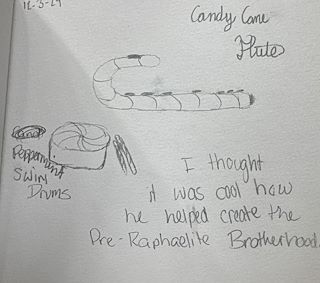 12-3-24
Candy Cane
Flute
Peppermint
Swirl
Drums
I thought
it was cool how
he helped create the
Pre-Raphaelite Brotherhood.